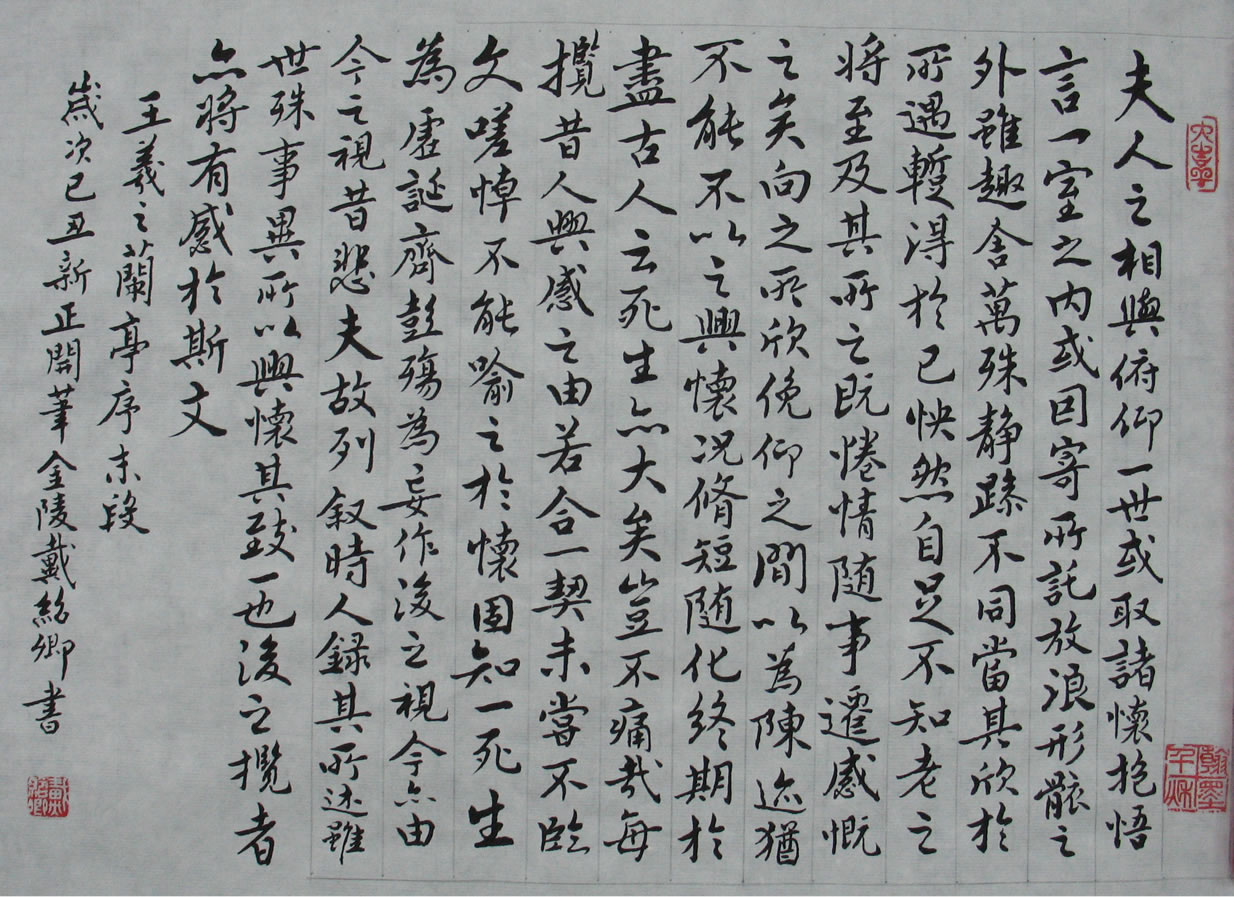 夫人之相與俯仰一世或取諸懷抱悟
言一室之内或因寄所託放浪形骸之
外雖趣舍萬殊静躁不同當其欣於
所遇暫得於己怏然自足不知老之
將至及其所之既惓情隨事遷感慨
之矣向之所欣俛仰之間以為陳迹猶
不能不以之興懷況脩短隨化終期於
盡古人云死生亦大矣豈不痛哉每
攬昔人興感之由若合一契未嘗不臨
文嗟悼不能喻之於懷固知一死生
為虛誕齊彭殤為妄作後之視今亦由
今之視昔悲夫故列叙時人録其所述雖
世殊事異所以興懷其致一也後之攬者
亦將有感於斯文
王羲之蘭亭序末段
歲次己丑新正開筆金陵戴紹卿書
翰墨千秋
戴紹卿